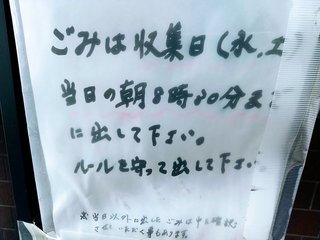 ごみは収集日(水.土
当日の朝8時30分ま
に出して下さい。
ルールを守って出して下さい
※当日以外に出したごみは中を確認
させていただく事もあります